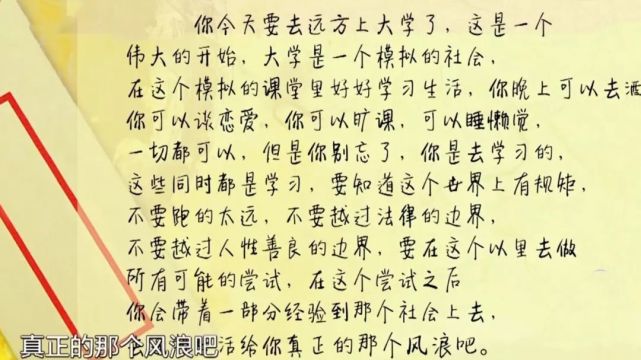 你今天要去远方上大学了，这是一个
伟大的开始，大学是一个模拟的社会，
在这个模拟的课堂里好好学习生活，你晚上可以去酒
你可以谈恋爱，你可以旷课，可以睡懒觉，
一切都可以，但是你别忘了，你是去学习的，
这些同时都是学习，要知道这个世界上有规矩，
不要跑的太远，不要越过法律的边界，
不要越过人性善良的边界，要在这个以里去做
所有可能的尝试，在这个尝试之后
你会带着一部分经验到那个社会上去，
活给你真正的那个风浪吧。
真正的那个风浪吧